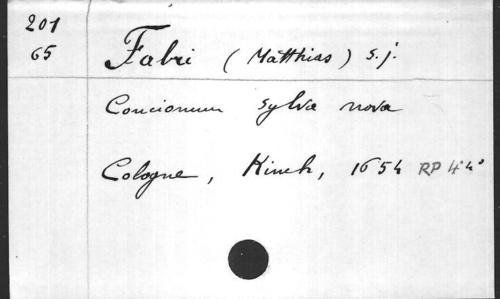 201
65
Fabri (Matthias) s.j.
Concionum sylva nova
Cologne, Kinch, 1654 RP 4 4°